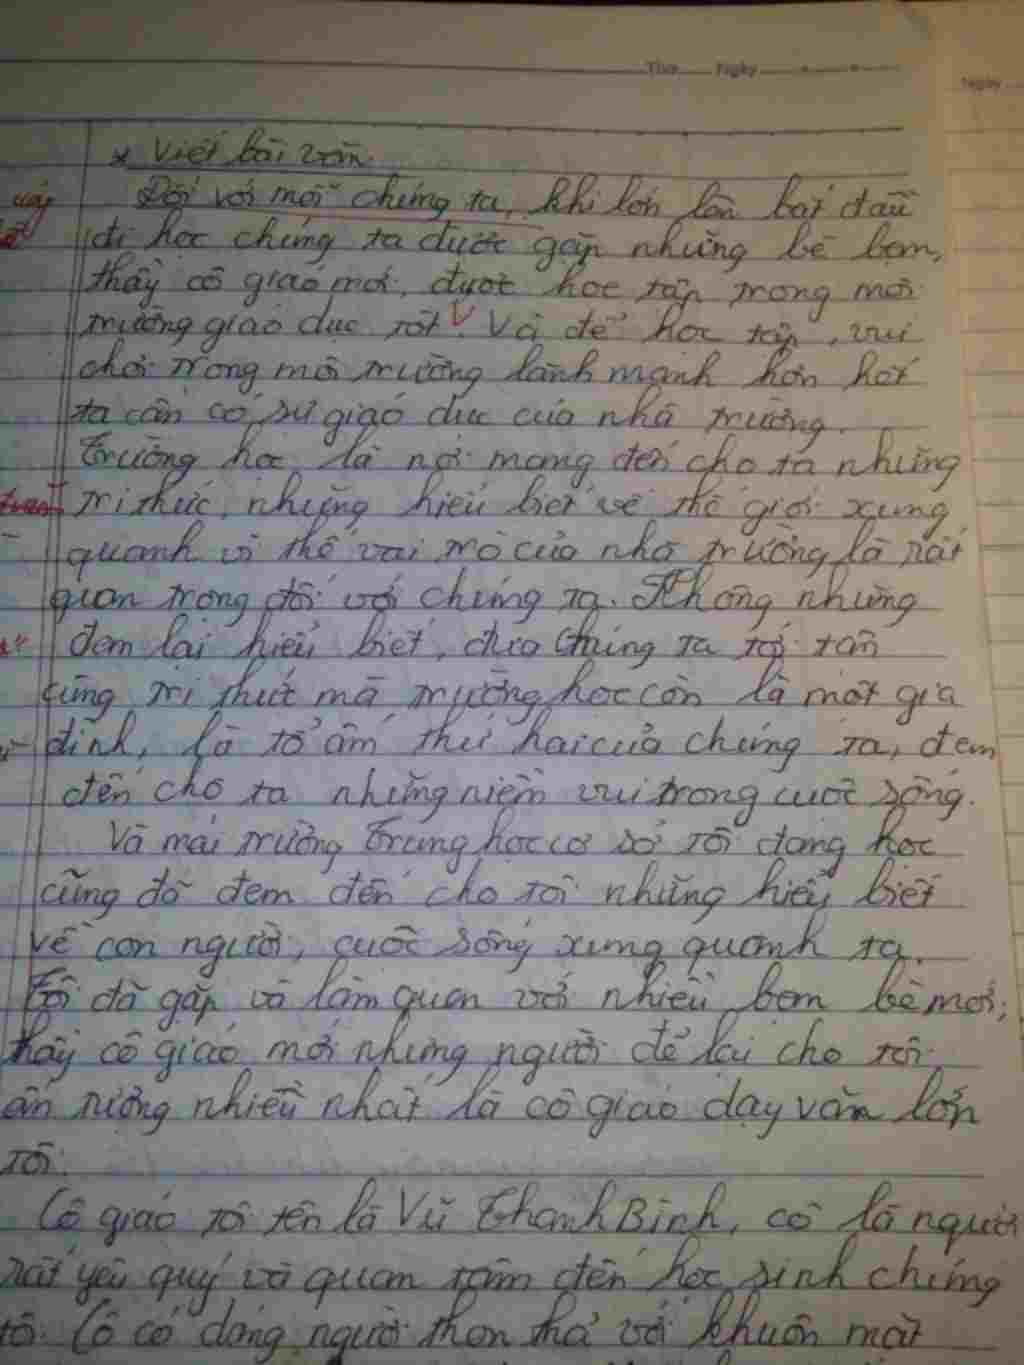 Thứ Ngày
Ngày
* Viết bài văn.
Đối với mỗi chúng ta, khi lớn lên bắt đầu
đi học chúng ta được gặp những bè bạn,
thầy cô giáo mới, được học tập trong môi
trường giáo dục tốt. Và để học tập, vui
chơi trong môi trường lành mạnh hơn hết
ta cần có sự giáo dục của nhà trường.
Trường học là nơi mang đến cho ta những
tri thức, những hiểu biết về thế giới xung
quanh vì thế vai trò của nhà trường là rất
quan trọng đối với chúng ta. Không những
đem lại hiểu biết, đưa chúng ta tới tân
cùng tri thức mà trường học còn là một gia
đình, là tổ ấm thứ hai của chúng ta, đem
đến cho ta những niềm vui trong cuộc sống.
Và mái trường Trung học cơ sở tôi đang học
cũng đã đem đến cho tôi những hiểu biết
về con người, cuộc sống xung quanh ta.
Tôi đã gặp và làm quen với nhiều bạn bè mới,
thầy cô giáo mới nhưng người để lại cho tôi
ấn tượng nhiều nhất là cô giáo dạy văn lớp
tôi.
Cô giáo tôi tên là Vũ Thanh Bình, cô là người
rất yêu quý và quan tâm đến học sinh chúng
tôi. Cô có dáng người thon thả với khuôn mặt